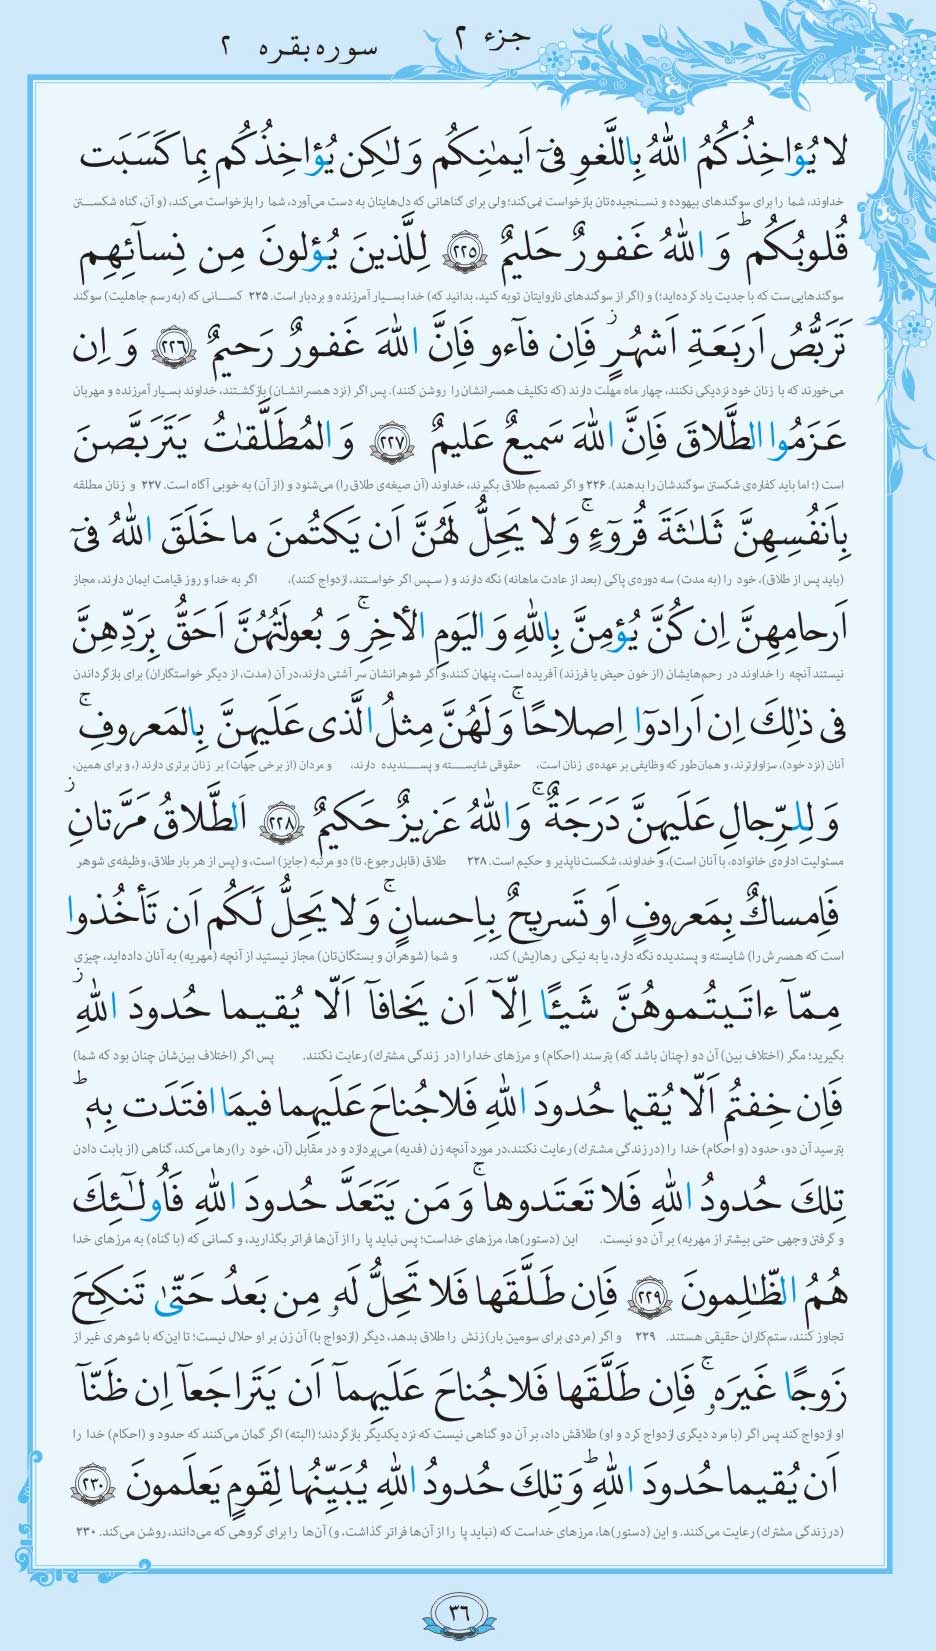 جزء ۲
سوره بقره ۲
لا يُؤاخِذُكُمُ اللهُ بِاللَّغوِ فى اَيمٰنِكُم وَ لٰكِن يُؤاخِذُكُم بِما كَسَبَت
خداوند، شما را برای سوگندهای بیهوده و نسنجیده‌تان بازخواست نمی‌کند؛ ولی برای گناهانی که دل‌هایتان به دست می‌آورد، شما را بازخواست می‌کند، (و آن، گناه شکستن
قُلوبُكُم ؕ وَ اللهُ غَفورٌ حَليمٌ ﴿۲۲۵﴾ لِلَّذينَ يُؤلونَ مِن نِسآئِهِم
سوگندهایی‌ست که با جدیت یاد کرده‌اید؛) و (اگر از سوگندهای ناروایتان توبه کنید، بدانید که) خدا بسیار آمرزنده و بردبار است. ۲۲۵ کسانی که (به رسم جاهلیت) سوگند
تَرَبُّصُ اَربَعَةِ اَشهُرٍ ز فَاِن فآءو فَاِنَّ اللهَ غَفورٌ رَحيمٌ ﴿۲۲۶﴾ وَ اِن
می‌خورند که با زنان خود نزدیکی نکنند، چهار ماه مهلت دارند (که تکلیف همسرانشان را روشن کنند). پس اگر (نزد همسرانشان) بازگشتند، خداوند بسیار آمرزنده و مهربان
عَزَمُوا الطَّلاقَ فَاِنَّ اللهَ سَميعٌ عَليمٌ ﴿۲۲۷﴾ وَ المُطَلَّقٰتُ يَتَرَبَّصنَ
است (؛ اما باید کفاره‌ی شکستن سوگندشان را بدهند). ۲۲۶ و اگر تصمیم طلاق بگیرند، خداوند (آن صیغه‌ی طلاق را) می‌شنود و (از آن) به خوبی آگاه است. ۲۲۷ و زنان مطلقه
بِاَنفُسِهِنَّ ثَلٰثَةَ قُروٓءٍ ۚ وَ لا يَحِلُّ لَهُنَّ اَن يَكتُمنَ ما خَلَقَ اللهُ فى
(باید پس از طلاق)، خود را (به مدت) سه دوره‌ی پاکی (بعد از عادت ماهانه) نگه دارند و ( سپس اگر خواستند، ازدواج کنند)، اگر به خدا و روز قیامت ایمان دارند، مجاز
اَرحامِهِنَّ اِن كُنَّ يُؤمِنَّ بِاللهِ وَ اليَومِ الأخِرِ ۚ وَ بُعولَتُهُنَّ اَحَقُّ بِرَدِّهِنَّ
نیستند آنچه را خداوند در رحم‌هایشان (از خون حیض یا فرزند) آفریده است، پنهان کنند، و اگر شوهرانشان سر آشتی دارند، در آن (مدت، از دیگر خواستگاران) برای بازگرداندن
فى ذٰلِكَ اِن اَرادوٓا اِصلاحًا ۚ وَ لَهُنَّ مِثلُ الَّذى عَلَيهِنَّ بِالمَعروفِ ۚ
آنان (نزد خود)، سزاوارترند، و همان‌طور که وظایفی بر عهده‌ی زنان است، حقوقی شایسته و پسندیده دارند، و مردان (از برخی جهات) بر زنان برتری دارند (، و برای همین،
وَ لِلرِّجالِ عَلَيهِنَّ دَرَجَةٌ ۚ وَ اللهُ عَزيزٌ حَكيمٌ ﴿۲۲۸﴾ اَلطَّلاقُ مَرَّتانِ ز
مسئولیت اداره‌ی خانواده، با آنان است)، و خداوند، شکست ناپذیر و حکیم است. ۲۲۸ طلاق (قابل رجوع، تا) دو مرتبه (جایز) است، و (پس از هر بار طلاق، وظیفه‌ی شوهر
فَاِمساكٌ بِمَعروفٍ اَو تَسريحٌ بِاِحسانٍ ۚ وَ لا يَحِلُّ لَكُم اَن تَأخُذوا
است که همسرش را) شایسته و پسندیده نگه دارد، یا به نیکی رها(یش) کند، و شما (شوهران و بستگان‌تان) مجاز نیستید از آنچه (مهریه) به آنان داده‌اید، چیزی
مِمّآ ءاتَيتُموهُنَّ شَيـًٔا اِلّآ اَن يَخافآ اَلّا يُقيما حُدودَ اللهِ ز
بگیرید؛ مگر (اختلاف بین) آن دو (چنان باشد که) بترسند (احکام) و مرزهای خدا را (در زندگی مشترک) رعایت نکنند. پس اگر (اختلاف بین‌شان چنان بود که شما)
فَاِن خِفتُم اَلّا يُقيما حُدودَ اللهِ فَلا جُناحَ عَلَيهِما فيمَا افتَدَت بِهٖ ؕ
بترسید آن دو، حدود (و احکام) خدا را (در زندگی مشترک) رعایت نکنند، در مورد آنچه زن (فدیه) می‌پردازد و در مقابل (آن، خود را) رها می‌کند، گناهی (از بابت دادن
تِلكَ حُدودُ اللهِ فَلا تَعتَدوها ۚ وَ مَن يَتَعَدَّ حُدودَ اللهِ فَاُولٰٓئِكَ
و گرفتن وجهی حتی بیشتر از مهریه) بر آن دو نیست. این (دستور)ها، مرزهای خداست؛ پس نباید پا را از آن‌ها فراتر بگذارید، و کسانی که (با گناه) به مرزهای خدا
هُمُ الظّٰلِمونَ ﴿۲۲۹﴾ فَاِن طَلَّقَها فَلا تَحِلُّ لَهٗ مِن بَعدُ حَتّىٰ تَنكِحَ
تجاوز کنند، ستم‌کاران حقیقی هستند. ۲۲۹ و اگر (مردی برای سومین بار) زنش را طلاق بدهد، دیگر (ازدواج با) آن زن بر او حلال نیست؛ تا این‌که با شوهری غیر از
زَوجًا غَيرَهٗ ۚ فَاِن طَلَّقَها فَلا جُناحَ عَلَيهِمآ اَن يَتَراجَعآ اِن ظَنّآ
او ازدواج کند پس اگر (با مرد دیگری ازدواج کرد و او) طلاقش داد، بر آن دو گناهی نیست که نزد یکدیگر بازگردند؛ (البته) اگر گمان می‌کنند که حدود و (احکام) خدا را
اَن يُقيما حُدودَ اللهِ ؕ وَ تِلكَ حُدودُ اللهِ يُبَيِّنُها لِقَومٍ يَعلَمونَ ﴿۲۳۰﴾
(در زندگی مشترک) رعایت می‌کنند. و این (دستور)ها، مرزهای خداست که (نباید پا را از آن‌ها فراتر گذاشت، و) آن‌ها را برای گروهی که می‌دانند، روشن می‌کند. ۲۳۰
۳۶